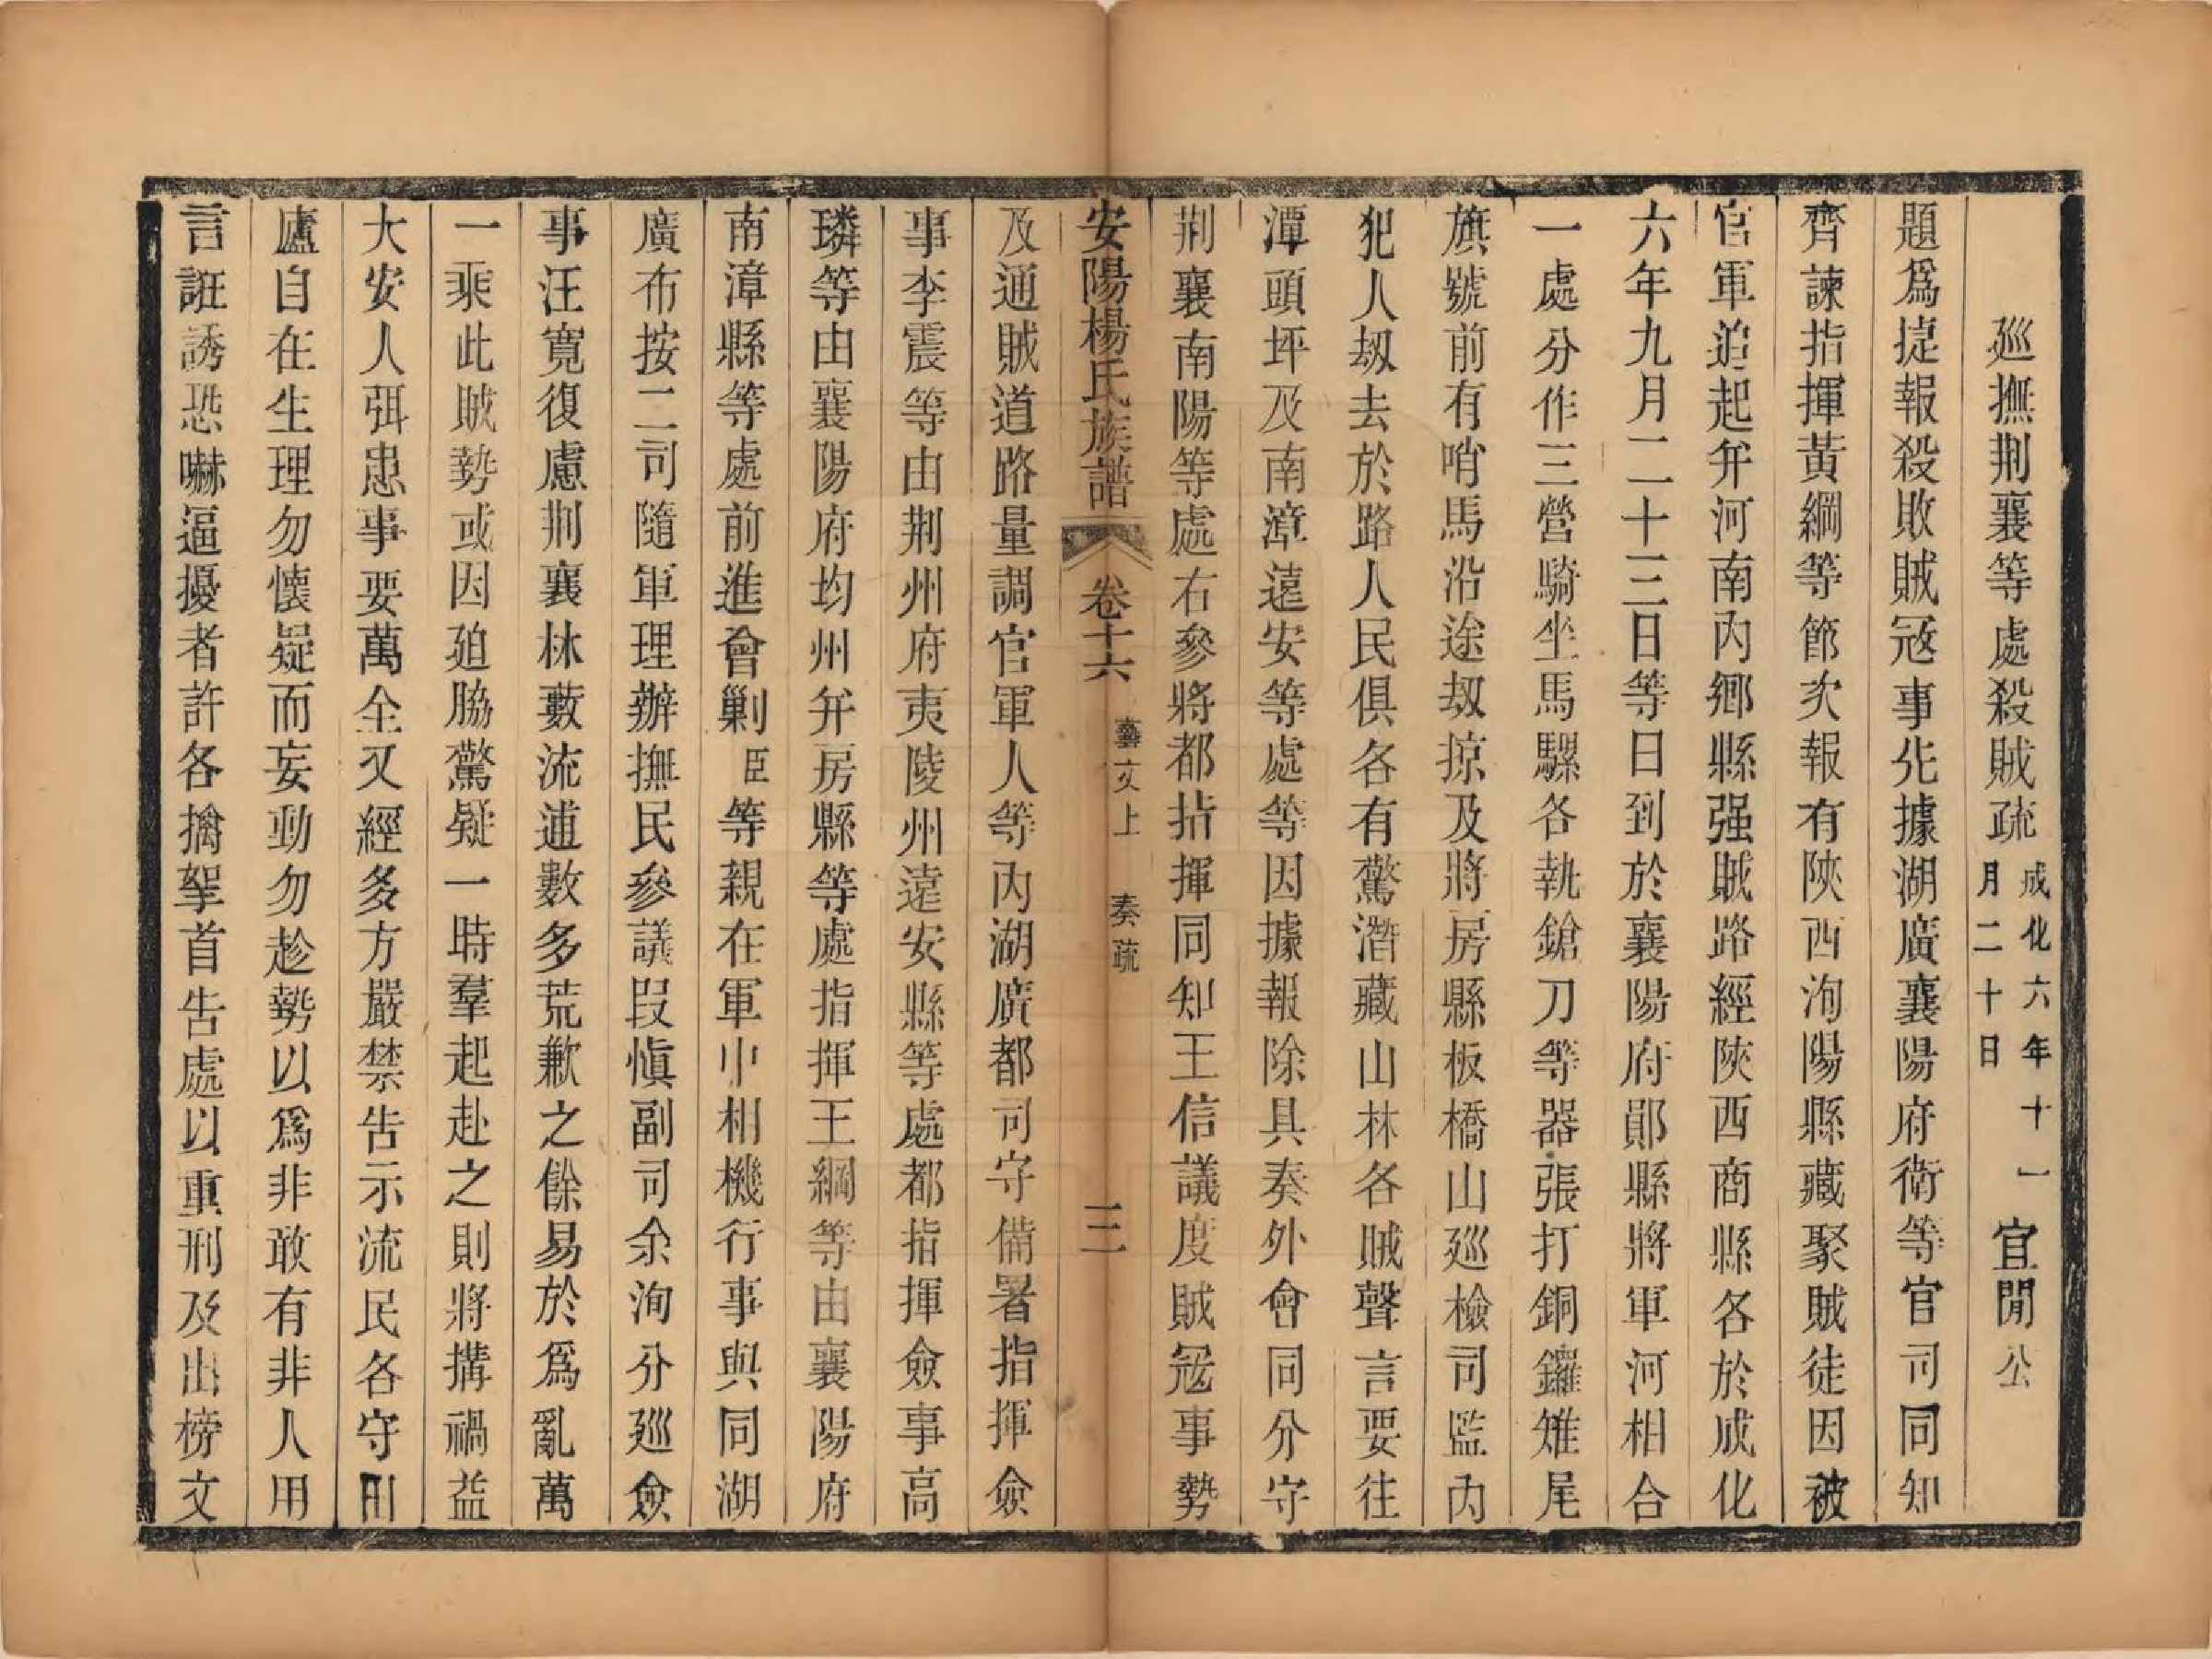 巡撫荆襄等處殺賊疏成化六年十一月二十日 宜閒公
題爲捷報殺敗賊冦事先據湖廣襄陽府衛等官司同知
齊諫指揮黃綱等節次報有陝西洵陽縣藏聚賊徒因被
官軍追起并河南內鄉縣强賊路經陝西商縣各於成化
六年九月二十三日等日到於襄陽府鄖縣將軍河相合
一處分作三營騎坐馬騾各執鎗刀等器張打銅鑼雉尾
旗號前有哨馬沿途刼掠及將房縣板橋山巡檢司監內
犯人刼去於路人民俱各有驚潛藏山林各賊聲言要往
潭頭坪及南漳遠安等處等因據報除具奏外會同分守
荆襄南陽等處右參將都指揮同知王信議度賊冦事勢
安陽楊氏族譜 卷十六 藝文上 奏疏 三
及通賊道路量調官軍人等內湖廣都司守備署指揮僉
事李震等由荆州府夷陵州遠安縣等處都指揮僉事高
璘等由襄陽府均州并房縣等處指揮王綱等由襄陽府
南漳縣等處前進會剿臣等親在軍中相機行事與同湖
廣布按二司隨軍理辦撫民參議段愼副司余洵分巡僉
事汪寬復慮荆襄林藪流逋數多荒歉之餘易於爲亂萬
一乘此賊勢或因廹脇驚疑一時羣起赴之則將搆禍益
大安人弭患事要萬全又經多方嚴禁告示流民各守田
廬自在生理勿懷疑而妄動勿趁勢以爲非敢有非人用
言誑誘恐嚇逼擾者許各擒拏首告處以重刑及出榜文